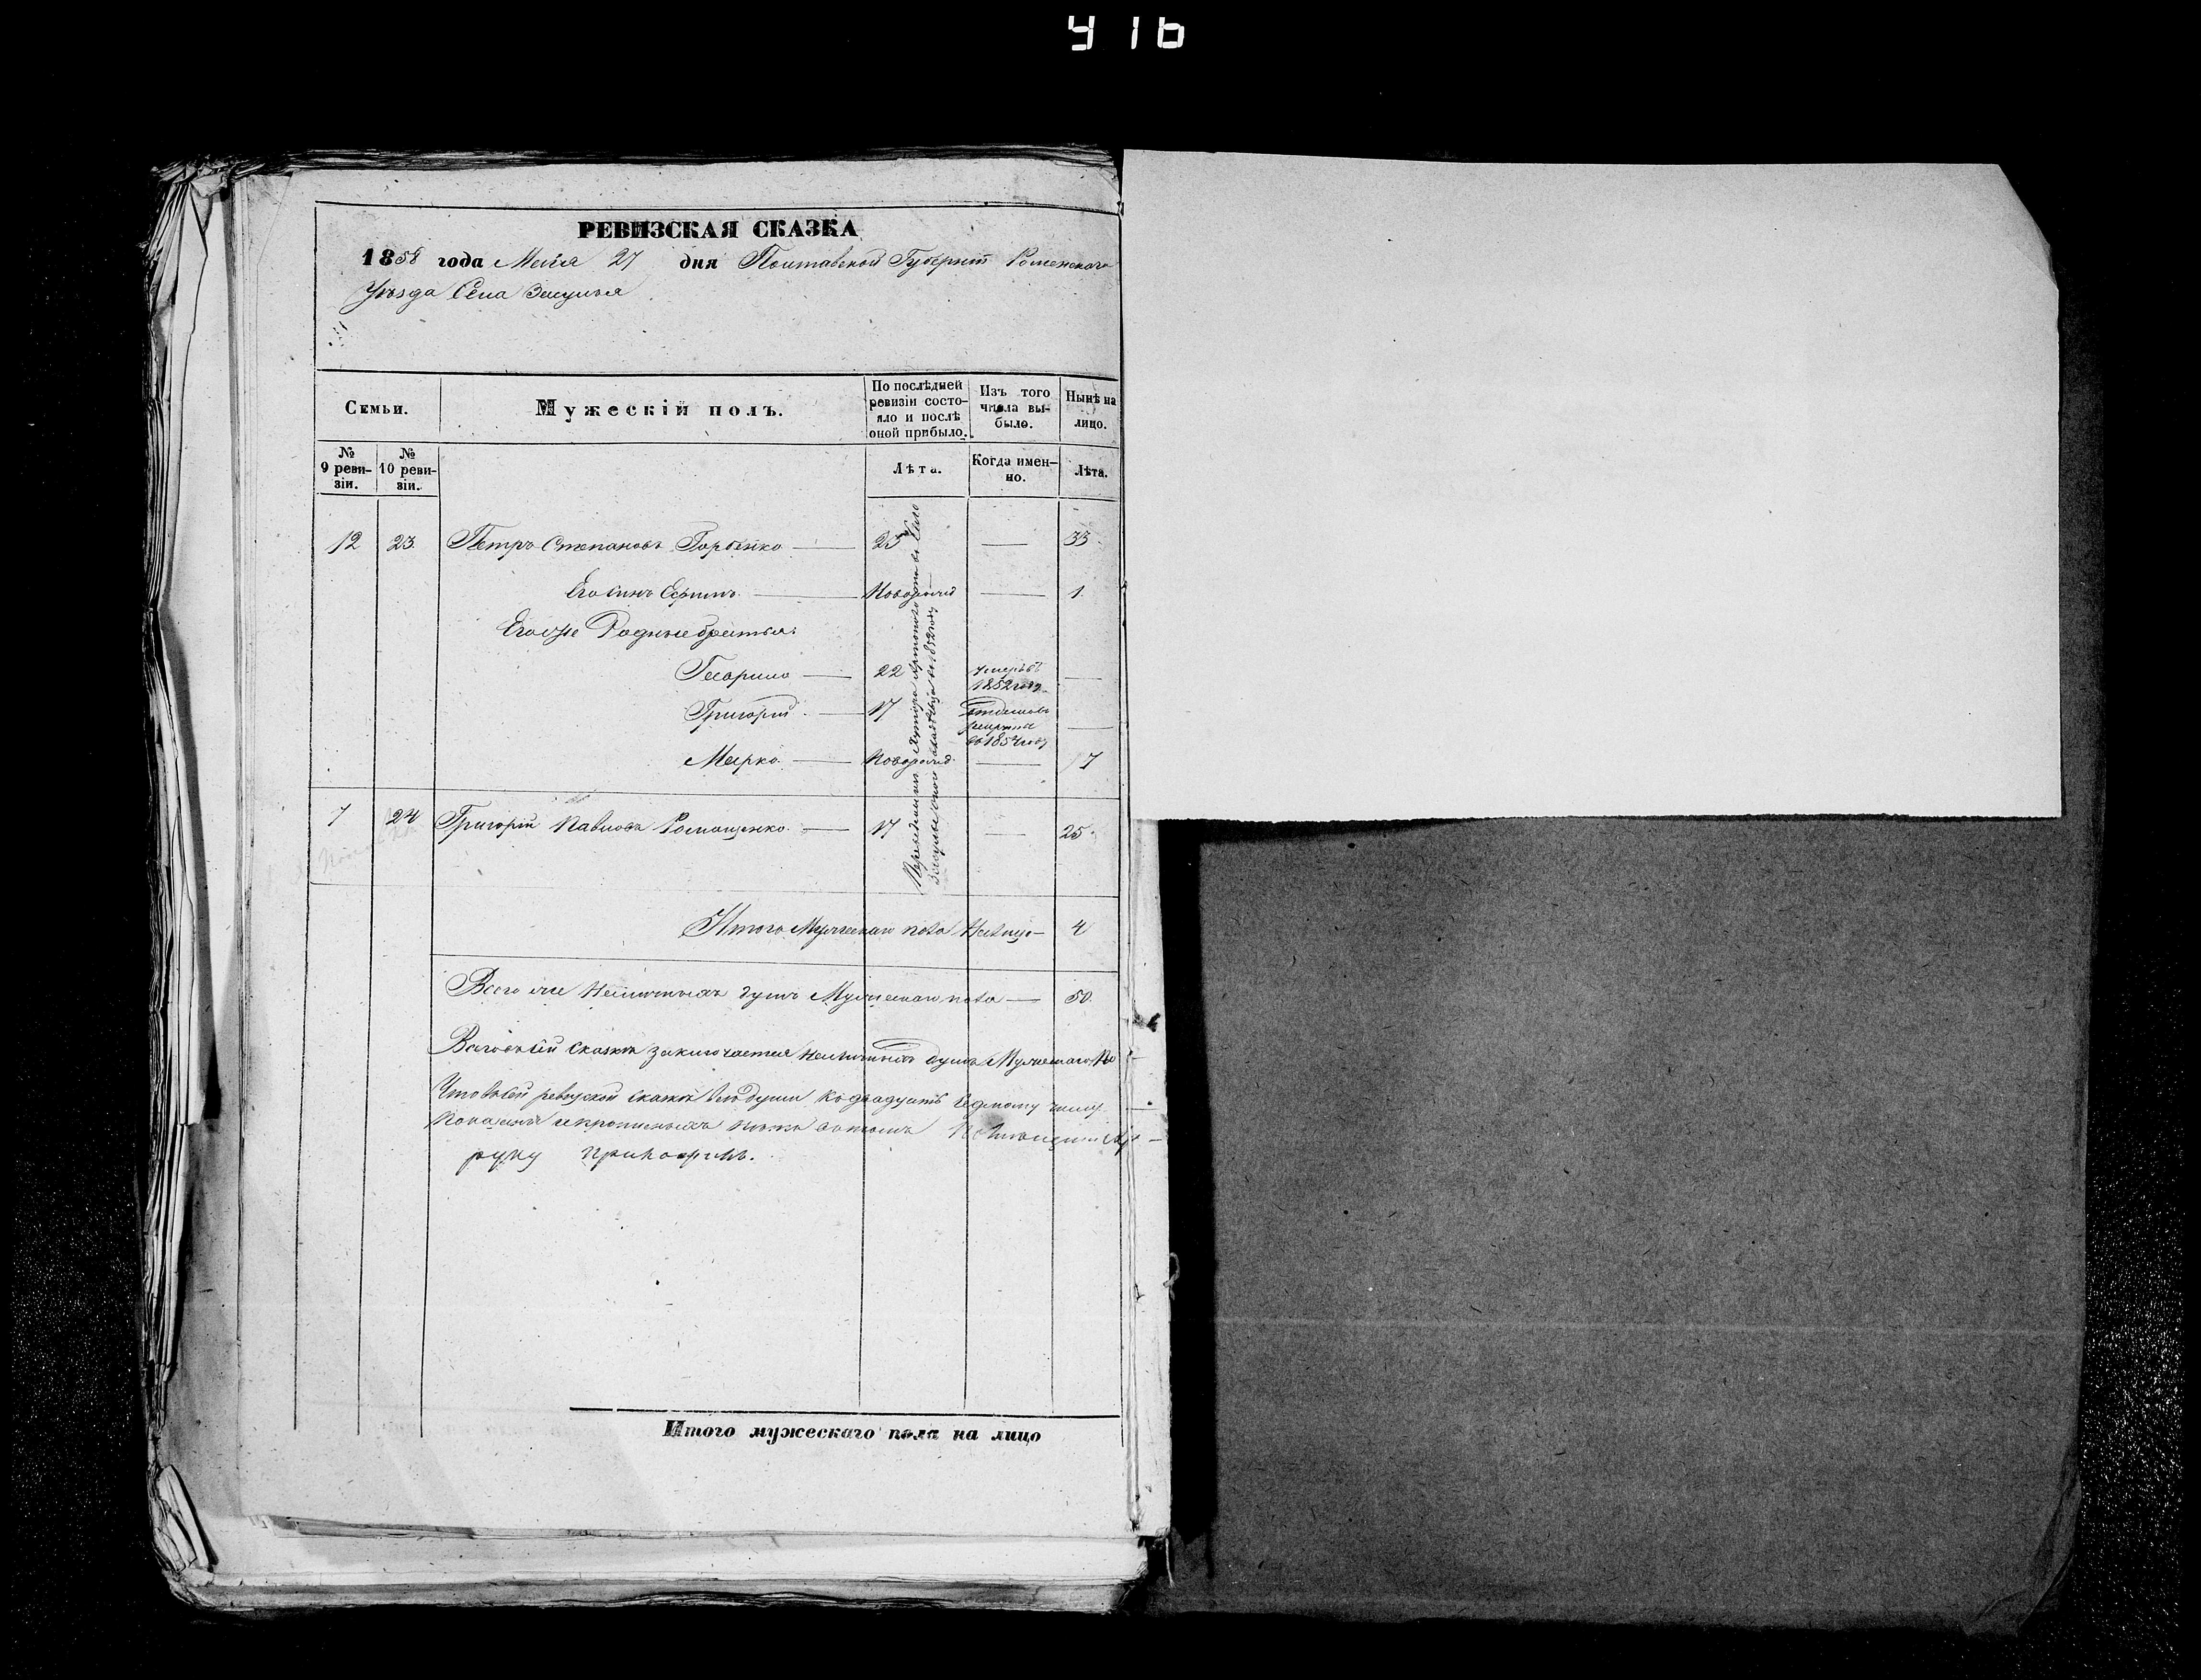 416
РЕВИЗСКАЯ СКАЗКА
1858 года Мая 27 дня Полтавской Губерніи Роменскаго
Уѣзда Села Засулья
Семьи.
Мужескій полъ.
По послѣдней ревизіи состояло и послѣ оной прибыло.
Изъ того числа выбыло.
Нынѣ на лицо.
№ 9 ревизіи.
№ 10 ревизіи.
Лѣта.
Когда именно.
Лѣта.
12 23. Петръ Степановъ Горбенко — 25 — 33.
Его сынъ Ефимъ — Новорожд — 1.
Его же Родные братья:
Гаврило — 22 умеръ въ 1852 году —
Григорій — 17 въ 1854 году —
Марко — Новорожд. — 7
7 24 Григорій Павловъ Ромащенко — 17 — 25.
Переведены изъ Хутора въ Село
Засулье въ 1852 году
Итого Мужескаго пола На лицо — 4
Всего же Наличныхъ душъ Мужескаго пола — 50.
сказкѣ заключается наличныхъ душъ Мужескаго По
Что въ сей ревизской сказкѣ всѣ души къ двадцать числу
Показаны и прописныхъ въ томъ
руку приложилъ.
Итого мужескаго пола на лицо